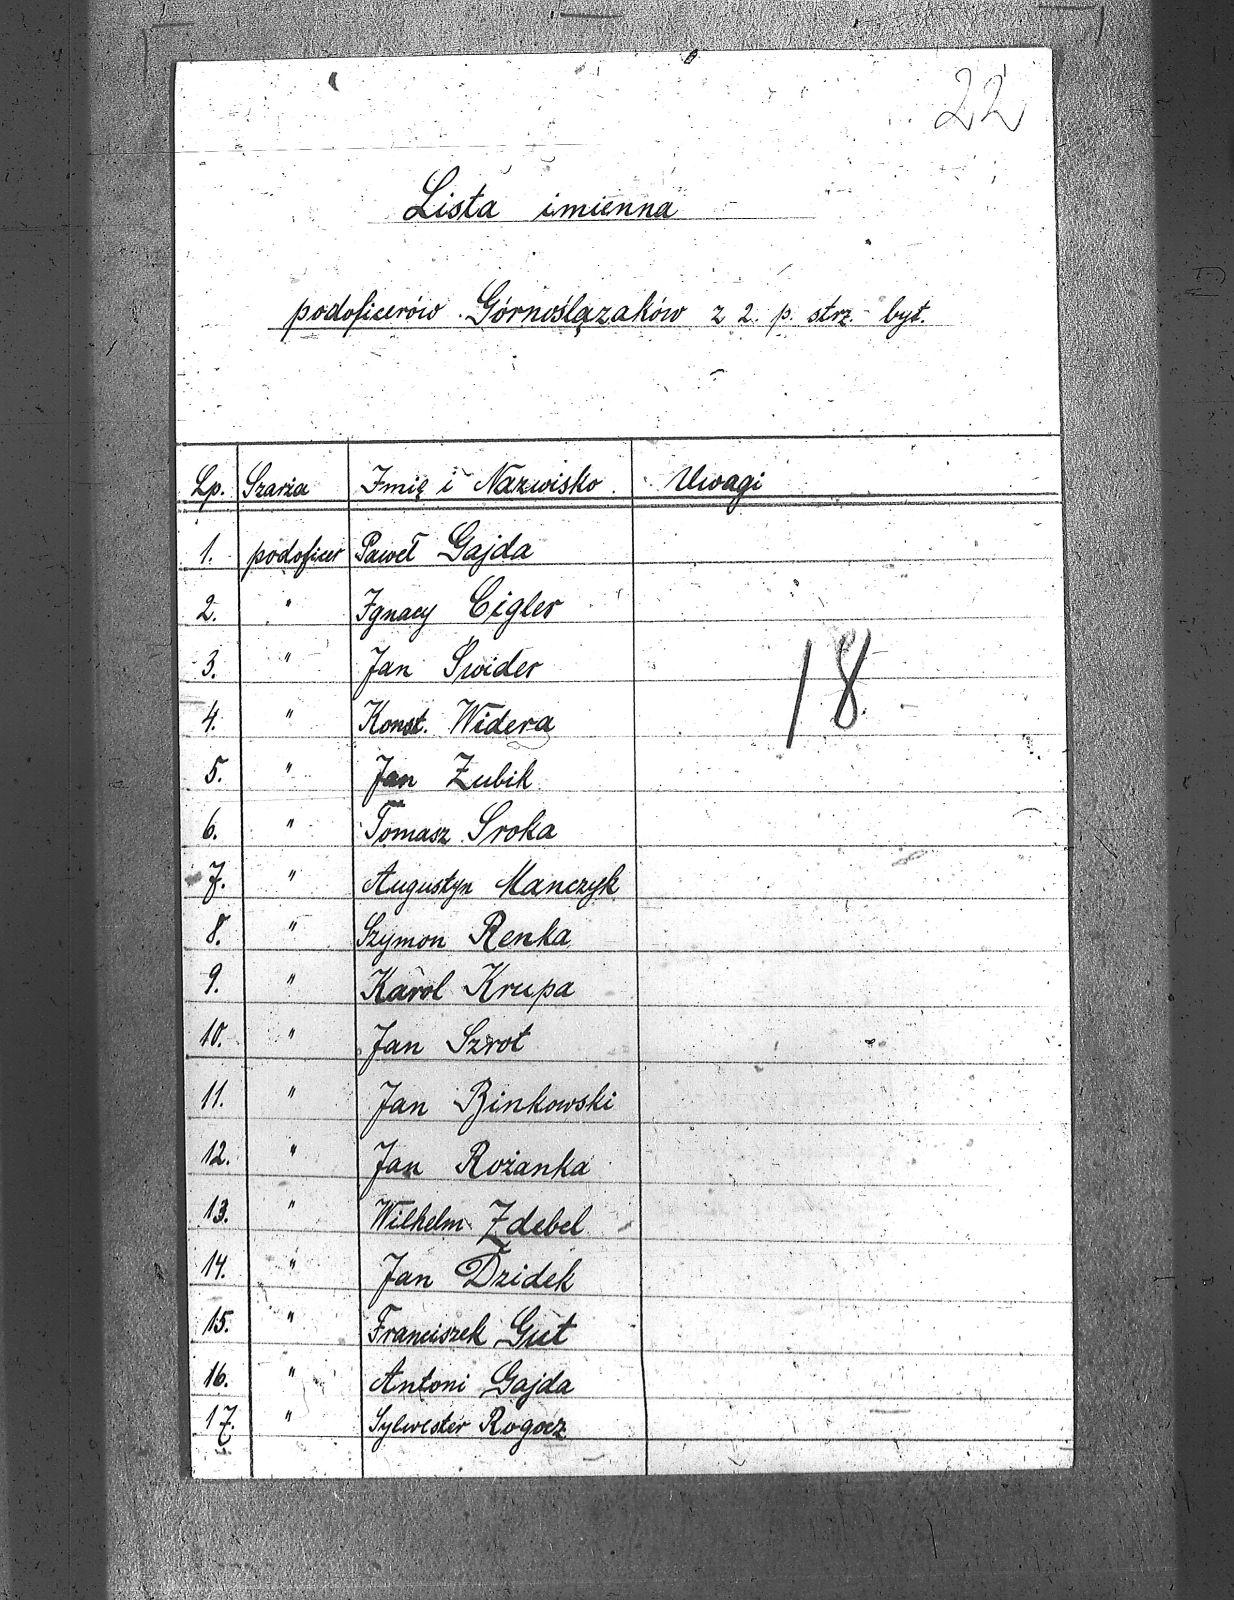 22
Lista imienna
podoficerów Górnoślązaków z 2. p. strz. byt.
Lp. Szarża Imię i Nazwisko Uwagi
1. podoficer Paweł Gajda
2. " Ignacy Cigler
3. " Jan Świder
4. " Konst. Widera
5. " Jan Zubik
6. " Tomasz Sroka
7. " Augustyn Manczyk
8. " Szymon Renka
9. " Karol Krupa
10. " Jan Szrot
11. " Jan Binkowski
12. " Jan Rożanka
13. " Wilhelm Zdebel
14. " Jan Dzidek
15. " Franciszek Gut
16. " Antoni Gajda
17. " Sylwester Rogocz
18